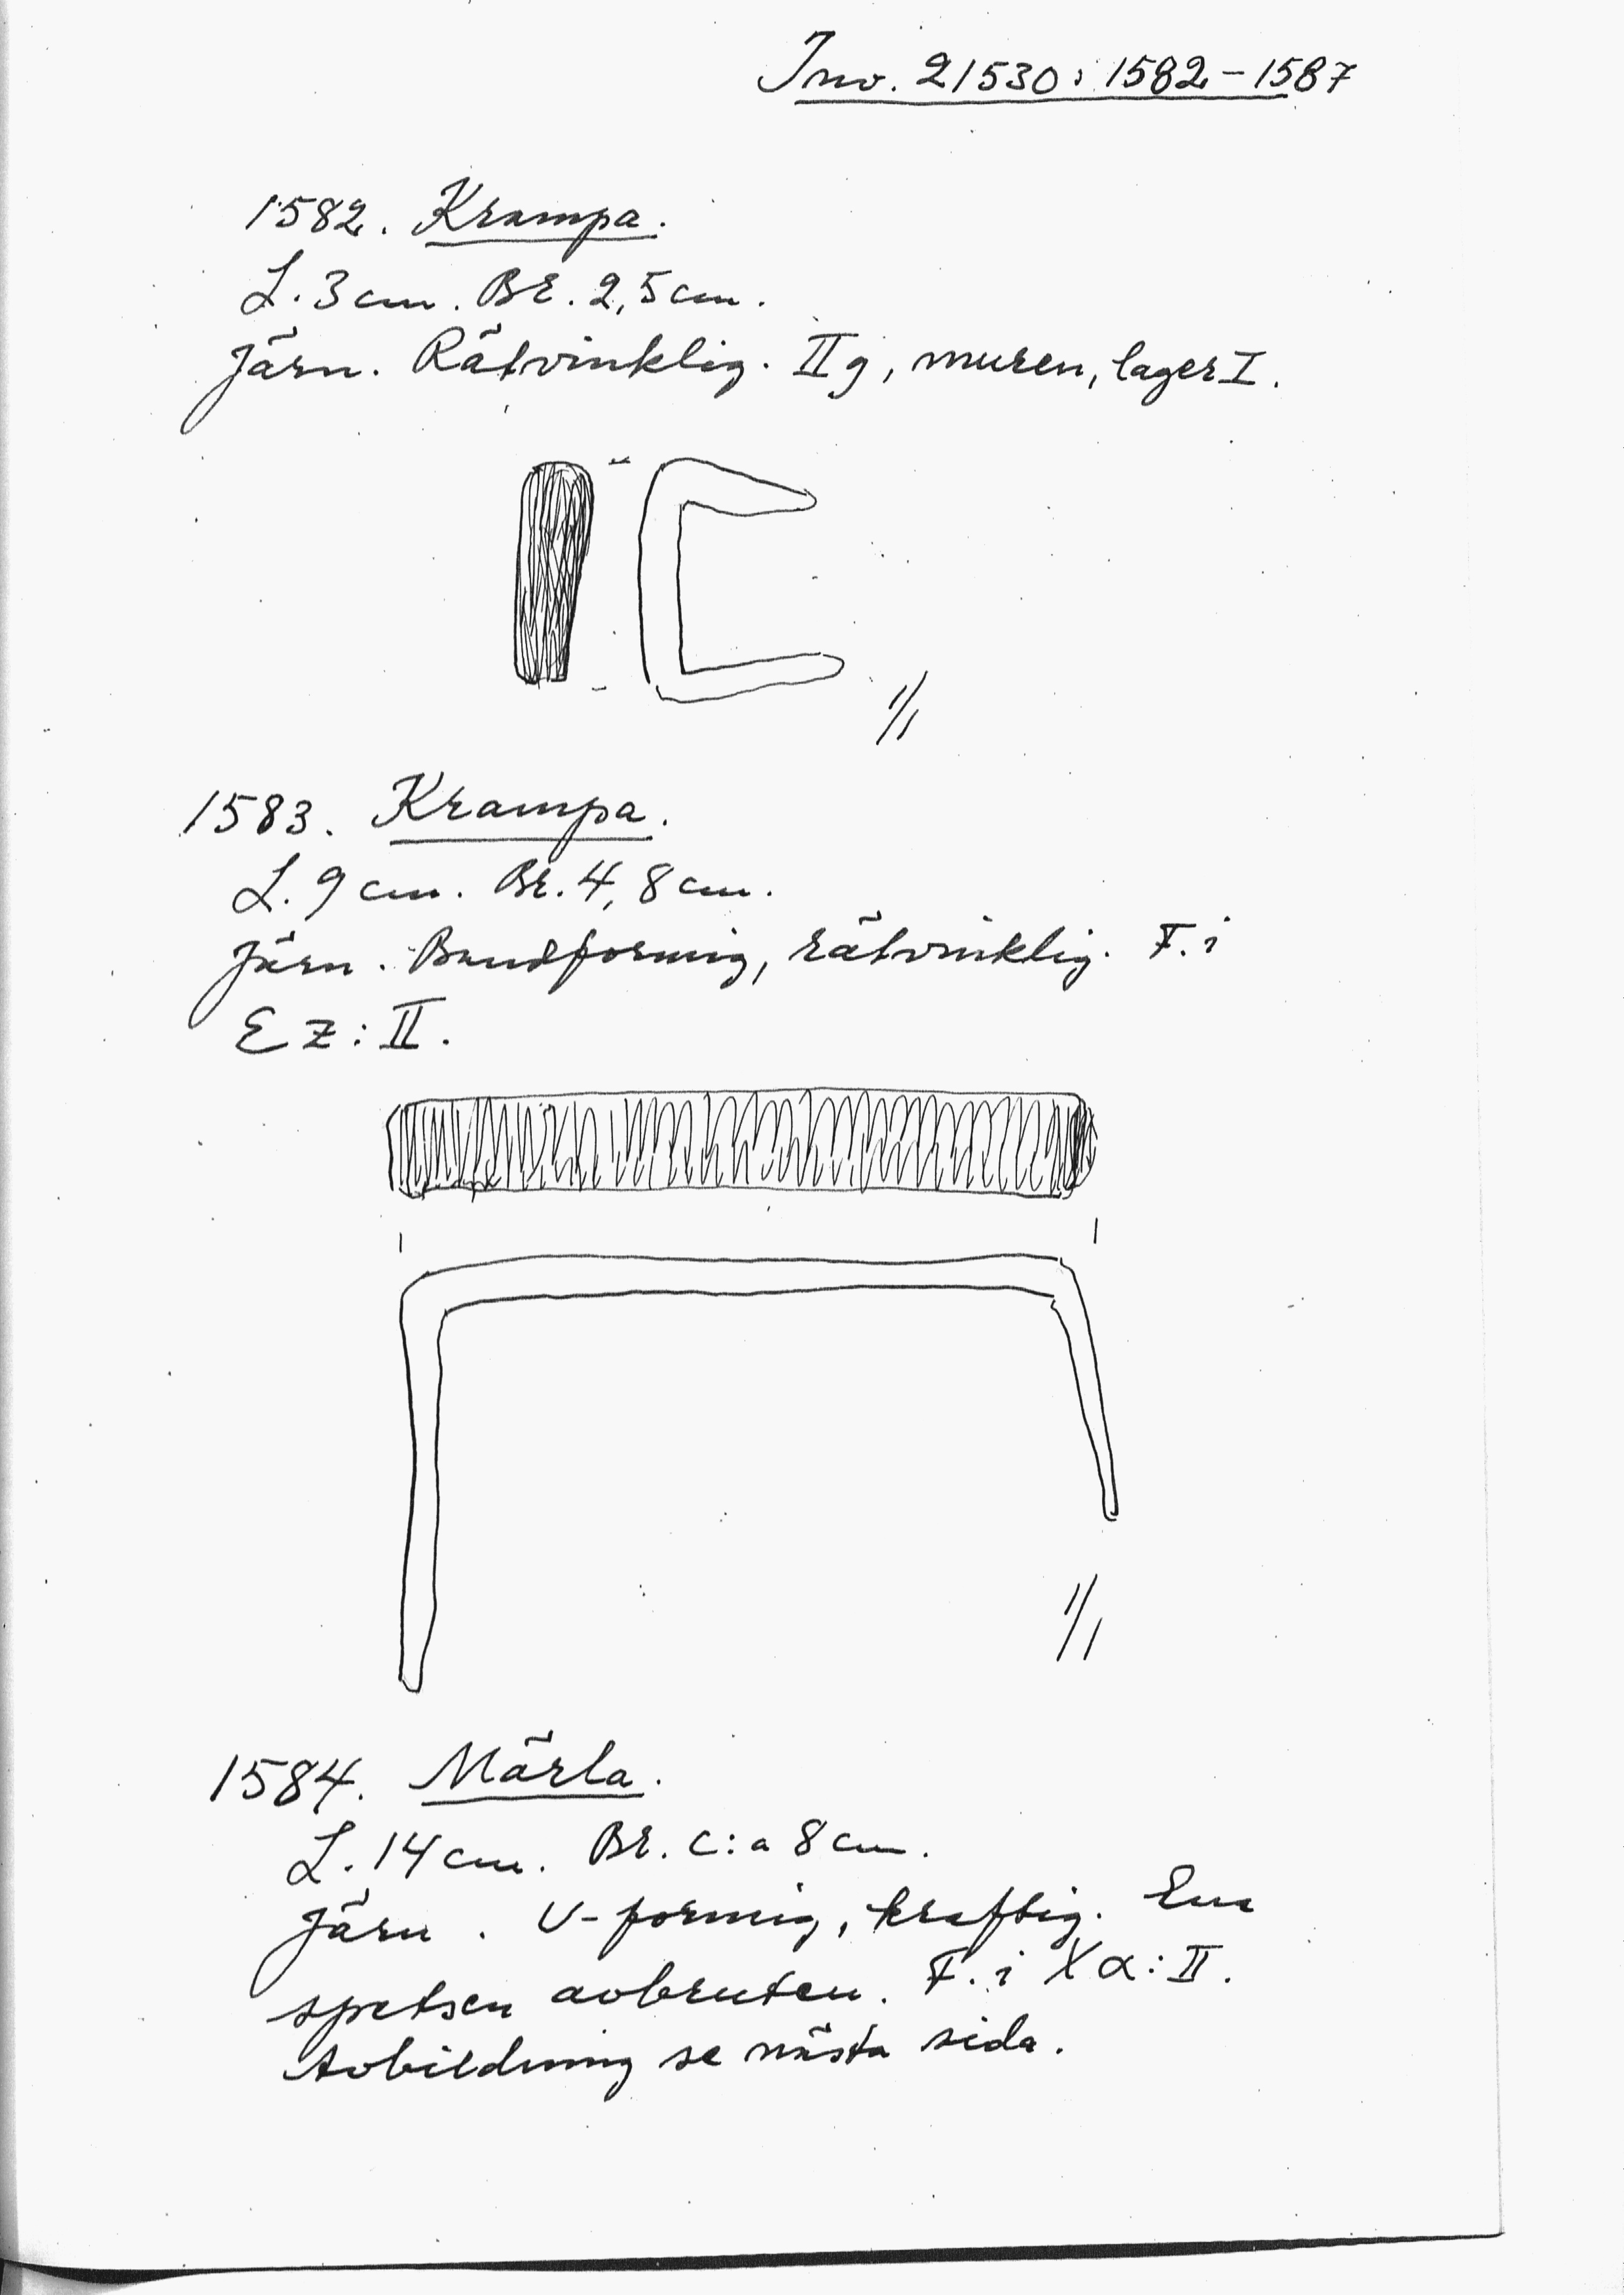 Inv. 21530: 1582-1587
1582. Krampa.
L. 3 cm. Br. 2,5 cm.
Järn. Rätvinklig. II g, muren, lager I.
1/1
1583. Krampa.
L. 9 cm. Br. 4,8 cm.
Järn. Bandformig, rätvinklig. F. i
E z: II.
1/1
1584. Märla.
L. 14 cm. Br. c:a 8 cm.
Järn. U-formig, kraftig. Ena
spetsen avbruten. F. i X α: II.
Avbildning se nästa sida.